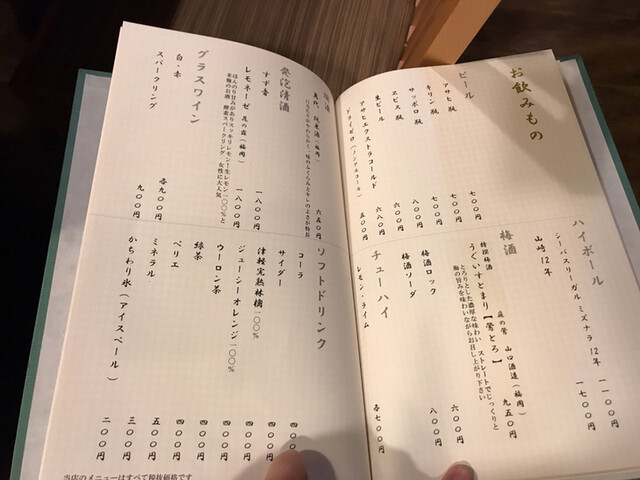 お飲みもの
ビール
アサヒ瓶 七〇〇円
キリン瓶 七〇〇円
サッポロ瓶 七〇〇円
ヱビス瓶 八〇〇円
生ビール 六〇〇円
アサヒエクストラコールド 六八〇円
ドライゼロ(ノンアルコール) 五〇〇円
ハイボール
シーバスリーガル ミズナラ 12年 一一〇〇円
山崎12年 一七〇〇円
梅酒
特撰梅酒 庭の鶯 山口酒造(福岡)
うぐいすとまり【鶯とろ】 九五〇円
とろりとした濃厚な味わい ストレートでじっくりと
梅の旨みを味わいながらお召し上がり下さい
梅酒ロック 六〇〇円
梅酒ソーダ 八〇〇円
チューハイ
レモン・ライム 各七〇〇円
純米酒(福岡) 六五〇円
発泡清酒
すず音 一八〇〇円
レモネーゼ 花の露(福岡) 一八〇〇円
ほんのり甘みがありスッキリレモン!生レモン一〇〇%と
米麹のお酒 酵素スパークリング 女性に大人気
グラスワイン
白・赤 各九〇〇円
スパークリング 九〇〇円
ソフトドリンク
コーラ 四〇
サイダー 四〇〇円
津軽完熟林檎一〇〇% 四〇〇円
ジューシーオレンジ一〇〇% 四〇〇円
ウーロン茶 四〇〇円
緑茶 四〇〇円
ペリエ 五〇〇円
ミネラル 三〇〇円
かちわり氷(アイスペール) 二〇〇円
当店のメニューはすべて税抜価格です